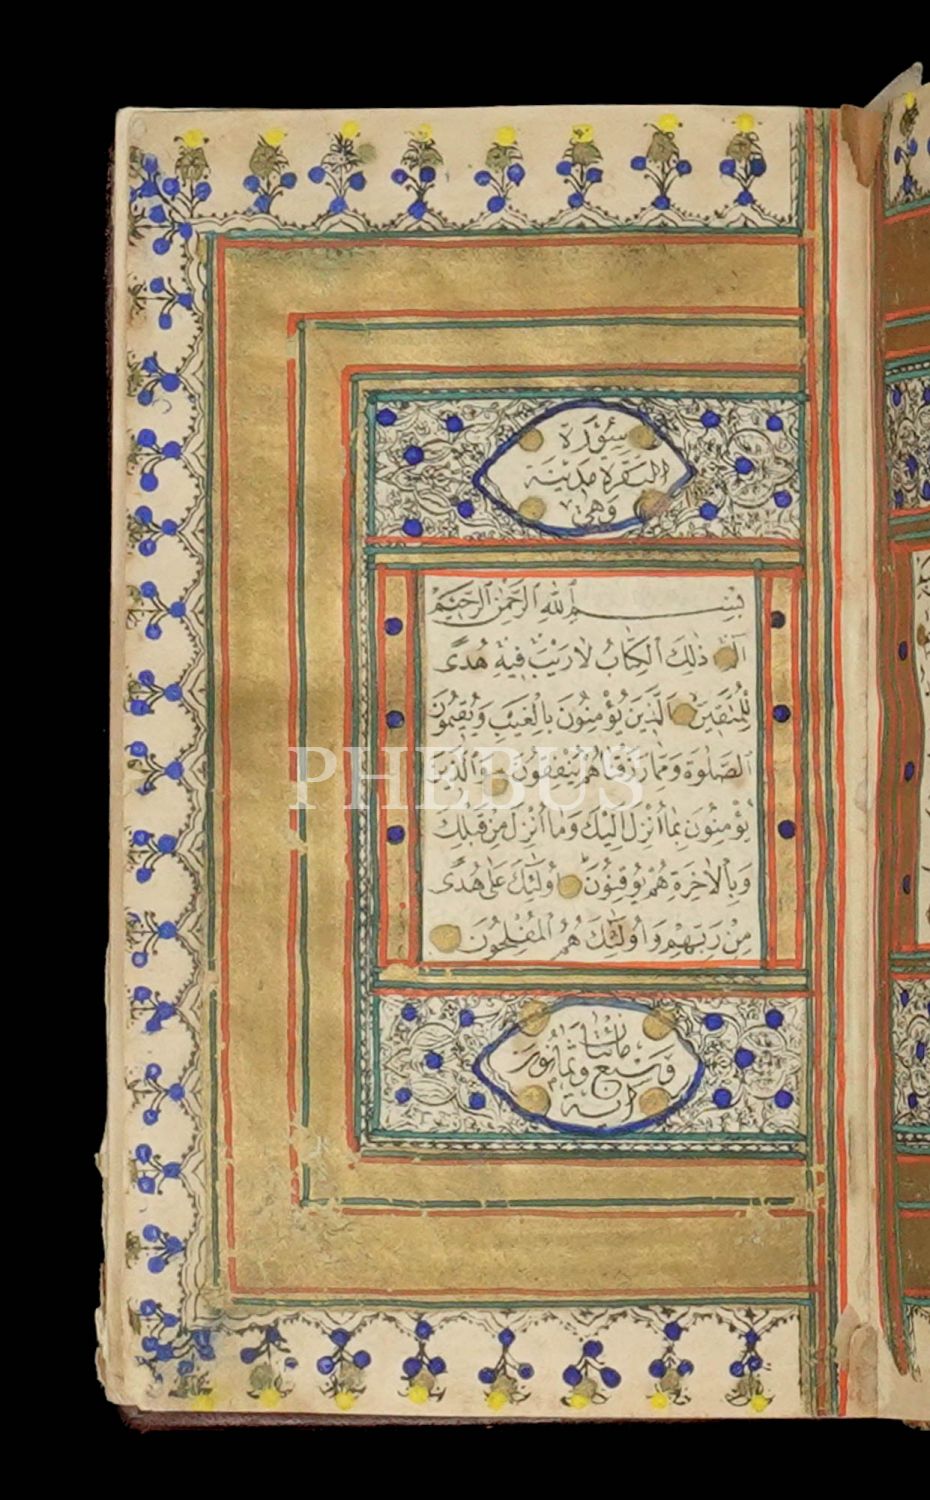 سُوْرَة
البقرة مدنية
وهي
بِسْمِ اللهِ الرَّحْمٰنِ الرَّحِيْمِ
الٓمٓ ذٰلِكَ الْكِتَابُ لَا رَيْبَ فِيْهِ هُدًى
لِلْمُتَّقِيْنَ الَّذِيْنَ يُؤْمِنُوْنَ بِالْغَيْبِ وَيُقِيْمُوْنَ
الصَّلٰوةَ وَمِمَّا رَزَقْنَاهُمْ يُنْفِقُوْنَ وَالَّذِيْنَ
يُؤْمِنُوْنَ بِمَا أُنْزِلَ إِلَيْكَ وَمَا أُنْزِلَ مِنْ قَبْلِكَ
وَبِالْاٰخِرَةِ هُمْ يُوْقِنُوْنَ أُولٰئِكَ عَلٰى هُدًى
مِنْ رَبِّهِمْ وَأُولٰئِكَ هُمُ الْمُفْلِحُوْنَ
مائتا
وسبع وثمانون
PHEBUS